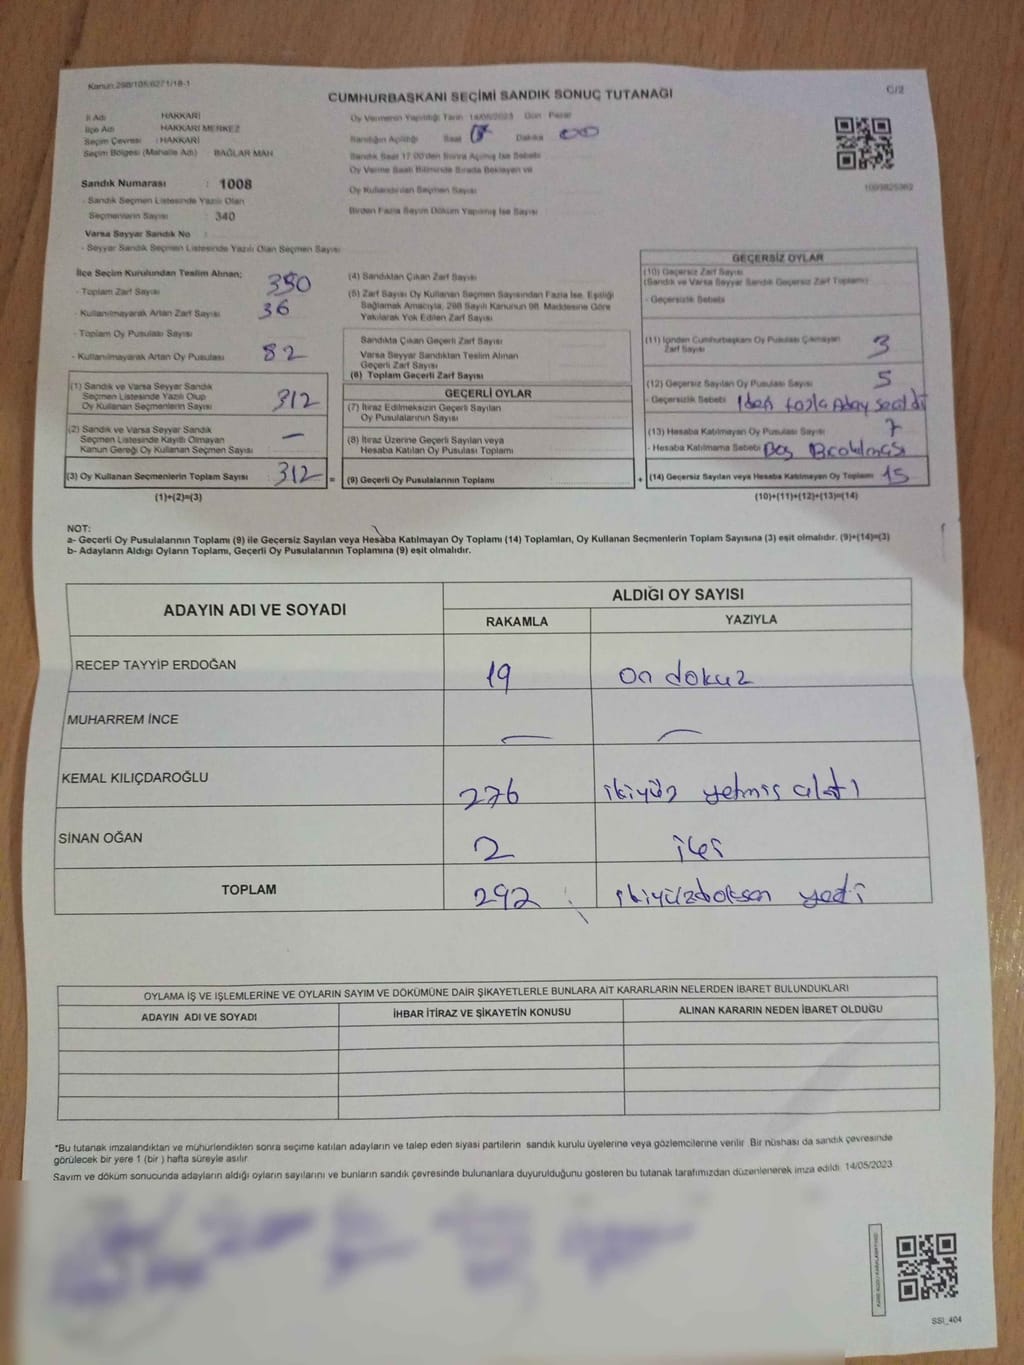 Kanun:298/105/6271/18-1
C/2
CUMHURBAŞKANI SEÇİMİ SANDIK SONUÇ TUTANAĞI
İl Adı : HAKKARİ
İlçe Adı : HAKKARİ MERKEZ
Seçim Çevresi : HAKKARİ
Seçim Bölgesi (Mahalle Adı) : BAĞLAR MAH
Sandık Numarası : 1008
- Sandık Seçmen Listesinde Yazılı Olan
Seçmenlerin Sayısı : 340
Varsa Seyyar Sandık No :
- Seyyar Sandık Seçmen Listesinde Yazılı Olan Seçmen Sayısı
Oy Vermenin Yapıldığı Tarih 14/05/2023 Gün Pazar
Sandığın Açıldığı Saat Dakika 00
Sandık Saat 17:00'den Sonra Açılmış İse Sebebi
Oy Verme Saati Bitiminde Sırada Bekleyen ve
Oy Kullandırılan Seçmen Sayısı
Birden Fazla Sayım Döküm Yapılmış İse Sayısı
1009825362
İlçe Seçim Kurulundan Teslim Alınan;
- Toplam Zarf Sayısı 350
- Kullanılmayarak Artan Zarf Sayısı 36
- Toplam Oy Pusulası Sayısı
- Kullanılmayarak Artan Oy Pusulası 82
(1) Sandık ve Varsa Seyyar Sandık
Seçmen Listesinde Yazılı Olup
Oy Kullanan Seçmenlerin Sayısı 312
(2) Sandık ve Varsa Seyyar Sandık
Seçmen Listesinde Kayıtlı Olmayan
Kanun Gereği Oy Kullanan Seçmen Sayısı —
(3) Oy Kullanan Seçmenlerin Toplam Sayısı 312 =
(1)+(2)=(3)
(4) Sandıktan Çıkan Zarf Sayısı
(5) Zarf Sayısı Oy Kullanan Seçmen Sayısından Fazla İse, Eşitliği
Sağlamak Amacıyla, 298 Sayılı Kanunun 98. Maddesine Göre
Yakılarak Yok Edilen Zarf Sayısı
Sandıkta Çıkan Geçerli Zarf Sayısı
Varsa Seyyar Sandıktan Teslim Alınan
Geçerli Zarf Sayısı
(6) Toplam Geçerli Zarf Sayısı
GEÇERLİ OYLAR
(7) İtiraz Edilmeksizin Geçerli Sayılan
Oy Pusulasının Sayısı
(8) İtiraz Üzerine Geçerli Sayılan veya
Hesaba Katılan Oy Pusulası Toplamı
(9) Geçerli Oy Pusulalarının Toplamı +
GEÇERSİZ OYLAR
(10) Geçersiz Zarf Sayısı
(Sandık ve Varsa Seyyar Sandık Geçersiz Zarf Toplamı)
- Geçersizlik Sebebi
(11) İçinden Cumhurbaşkanı Oy Pusulası Çıkmayan
Zarf Sayısı 3
(12) Geçersiz Sayılan Oy Pusulası Sayısı 5
- Geçersizlik Sebebi 1den fazla Aday seçildi
(13) Hesaba Katılmayan Oy Pusulası Sayısı 7
- Hesaba Katılmama Sebebi Boş Bırakılması
(14) Geçersiz Sayılan veya Hesaba Katılmayan Oy Toplamı 15
(10)+(11)+(12)+(13)=(14)
NOT:
a- Geçerli Oy Pusulalarının Toplamı (9) ile Geçersiz Sayılan veya Hesaba Katılmayan Oy Toplamı (14) Toplamları, Oy Kullanan Seçmenlerin Toplam Sayısına (3) eşit olmalıdır. (9)+(14)=(3)
b- Adayların Aldığı Oyların Toplamı, Geçerli Oy Pusulalarının Toplamına (9) eşit olmalıdır.
ADAYIN ADI VE SOYADI ALDIĞI OY SAYISI
RAKAMLA YAZIYLA
RECEP TAYYİP ERDOĞAN 19 on dokuz
MUHARREM İNCE — —
KEMAL KILIÇDAROĞLU 276 ikiyüz yetmiş altı
SİNAN OĞAN 2 iki
TOPLAM 292 ikiyüzdoksen yedi
OYLAMA İŞ VE İŞLEMLERİNE VE OYLARIN SAYIM VE DÖKÜMÜNE DAİR ŞİKAYETLERLE BUNLARA AİT KARARLARIN NELERDEN İBARET BULUNDUKLARI
ADAYIN ADI VE SOYADI İHBAR İTİRAZ VE ŞİKAYETİN KONUSU ALINAN KARARIN NEDEN İBARET OLDUĞU
*Bu tutanak imzalandıktan ve mühürlendikten sonra seçime katılan adayların ve talep eden siyasi partilerin sandık kurulu üyelerine veya gözlemcilerine verilir. Bir nüshası da sandık çevresinde
görülecek bir yere 1 (bir ) hafta süreyle asılır.
Sayım ve döküm sonucunda adayların aldığı oyların sayılarını ve bunların sandık çevresinde bulunanlara duyurulduğunu gösteren bu tutanak tarafımızdan düzenlenerek imza edildi. 14/05/2023
SSI_404